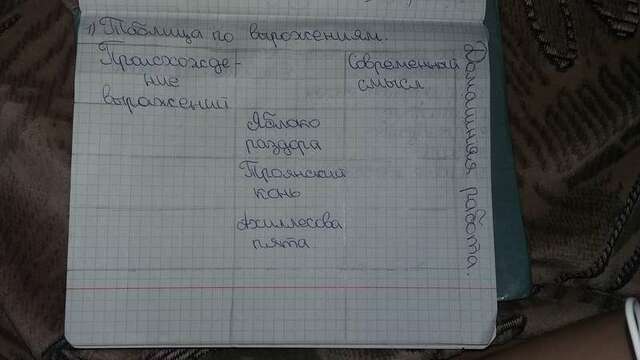 1) Таблица по выражениям.
Происхожде-
ние
выражений
Современный
смысл
Яблоко
раздора
Троянский
конь
Ахиллесова
пята
Домашняя работа.